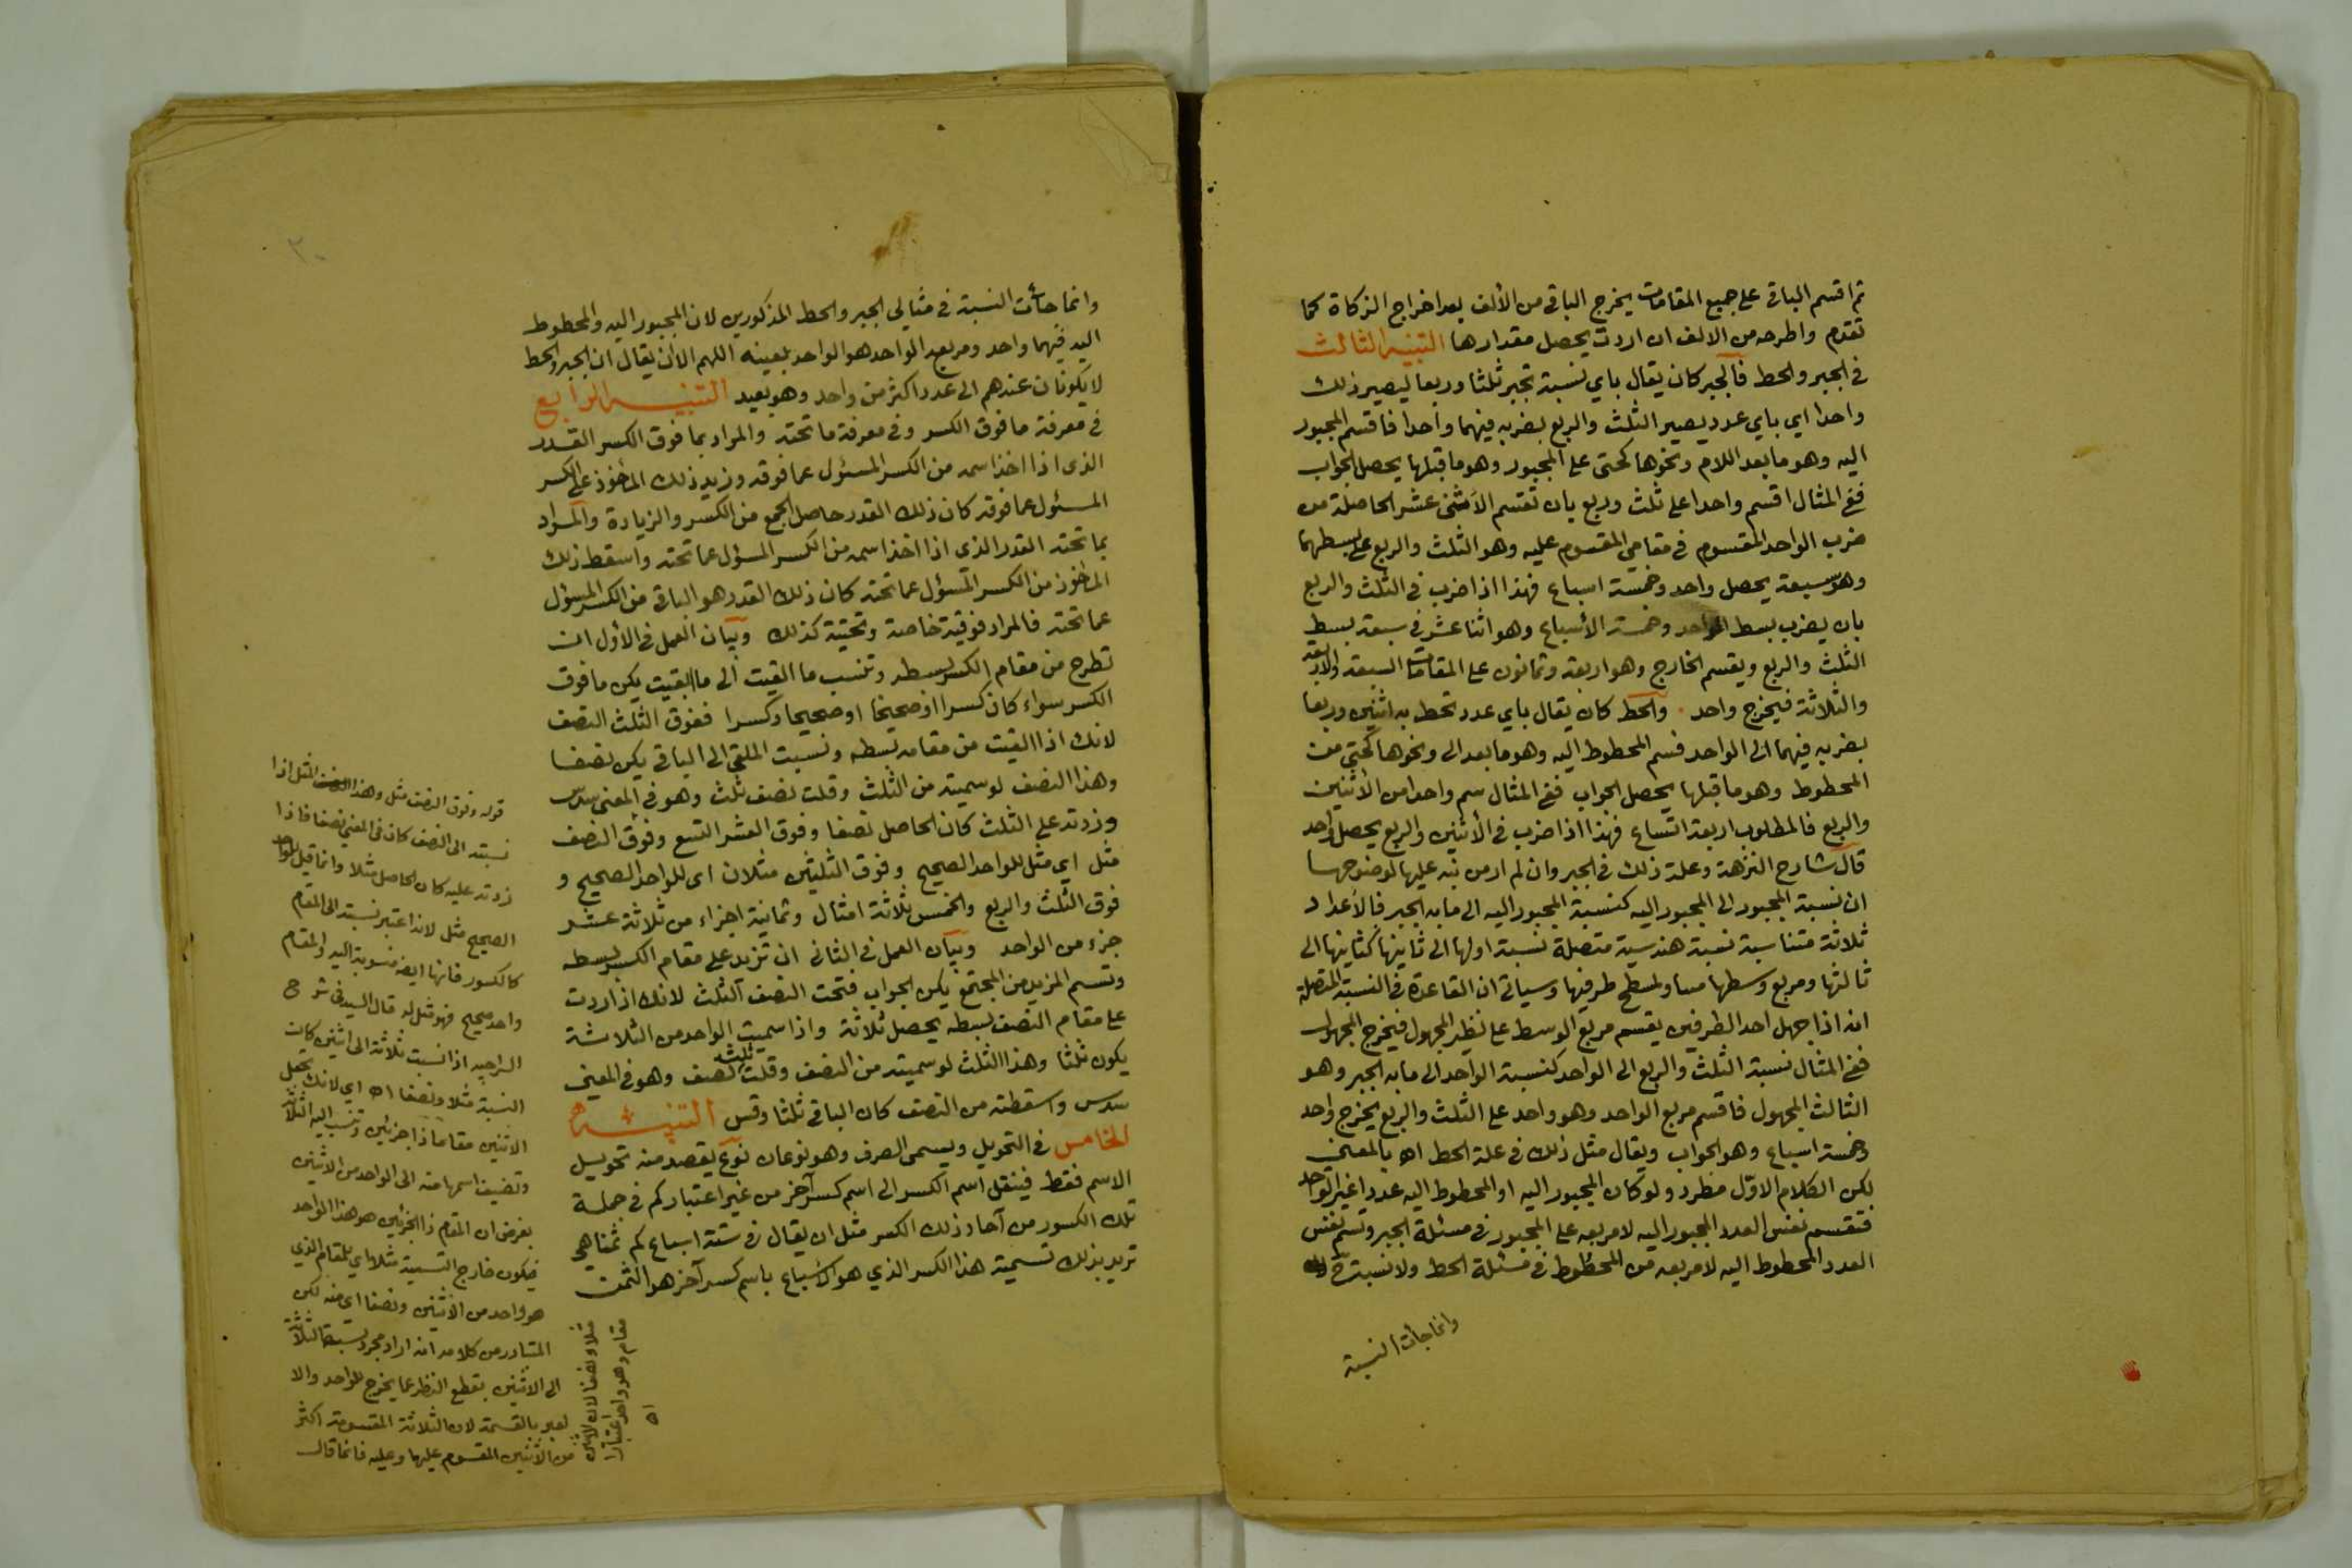 ثم اقسم الباقي على جميع المقامات يخرج الباقي من الألف بعد اخراج الزكاة كما
تقدم واطرحه من الالف ان اردت يحصل مقدارها التنبيه الثالث
في الجبر والحط فالجبر كان يقال باي نسبة تجبر ثلثا وربعا ليصير ذلك
واحدا اي باي عدد يصير الثلث والربع بضربه فيهما واحدا فاقسم المجبور
اليه وهو ما بعد اللام ونحوها كحتى على المجبور وهو ما قبلها يحصل الجواب
ففي المثال اقسم واحدا على ثلث وربع بان تقسم الاثنى عشر الحاصلة من
ضرب الواحد المقسوم في مقامي المقسوم عليه وهو الثلث والربع على بسطهما
وهو سبعة يحصل واحد وخمسة اسباع فهذا اذا ضرب في الثلث والربع
بان يضرب بسط الواحد وخمسة الأسباع وهو اثنا عشر في سبعة بسط
الثلث والربع ويقسم الخارج وهو اربعة وثمانون على المقامات السبعة والاربعة
والثلاثة فيخرج واحد . والحط كان يقال باي عدد تحط به اثنين وربعا
بضربه فيهما الى الواحد فسم المحطوط اليه وهو ما بعد الى ونحوها كحتى من
المحطوط وهو ما قبلها يحصل الجواب ففي المثال سم واحدا من الاثنين
والربع فالمطلوب اربعة اتساع فهذا اذا ضرب في الأثنين والربع يحصل واحد
قال شارح النزهة وعلة ذلك في الجبر وان لم ار من نبه عليها لوضوحها
ان نسبة المجبور الى المجبور اليه كنسبة المجبور اليه الى ما به الجبر فالأعداد
ثلاثة متناسبة نسبة هندسية متصلة نسبة اولها الى ثانيها كثانيها الى
ثالثها ومربع وسطها مساو لمسطح طرفيها وسياتي ان القاعدة في النسبة المتصلة
انه اذا جهل احد الطرفين يقسم مربع الوسط على نظير المجهول فيخرج المجهول
ففي المثال نسبة الثلث والربع الى الواحد كنسبة الواحد الى ما به الجبر وهو
الثالث المجهول فاقسم مربع الواحد وهو واحد على الثلث والربع يخرج واحد
وخمسة اسباع وهو الجواب ويقال مثل ذلك في علة الحط اه بالمعنى
لكن الكلام الاول مطرد ولو كان المجبور اليه او المحطوط اليه عددا غير الواحد
فتقسم نفس العدد المجبور اليه لا مربعه على المجبور في مسئلة الجبر وتسم نفس
العدد المحطوط اليه لا مربعه من المحطوط في مسئلة الحط ولا نسبة ح
وانما جأت النسبة
٢٠
وانما جأت النسبة في مثالي الجبر والحط المذكورين لان المجبور اليه والمحطوط
اليه فيهما واحد ومربع الواحد هو الواحد بعينه اللهم الا ان يقال ان الجبر والحط
لا يكونان عندهم الى عدد اكثر من واحد وهو بعيد التنبيه الرابع
في معرفة ما فوق الكسر وفي معرفة ما تحته والمراد بما فوق الكسر القدر
الذي اذا اخذ اسمه من الكسر المسئول عما فوقه وزيد ذلك المأخوذ على الكسر
المسئول عما فوقه كان ذلك القدر حاصل الجمع من الكسر والزيادة والمراد
بما تحته القدر الذي اذا اخذ اسمه من الكسر المسؤل عما تحته واسقط ذلك
المأخوذ من الكسر المسؤل عما تحته كان ذلك القدر هو الباقي من الكسر المسؤل
عما تحته فالمراد فوقية خاصة وتحتية كذلك وبيان العمل في الأول ان
تطرح من مقام الكسر بسطه وتنسب ما القيت الى ما ابقيت يكن ما فوق
الكسر سواء كان كسرا او صحيحا او صحيحا وكسرا ففوق الثلث النصف
لانك اذا القيت من مقامه بسطه ونسبت الملقى الى الباقي يكن نصفا
وهذا النصف لو سميته من الثلث وقلت نصف ثلث وهو في المعنى سدس
وزدته على الثلث كان الحاصل نصفا وفوق العشر التسع وفوق النصف
مثل اي مثل للواحد الصحيح وفوق الثلثين مثلان اى للواحد الصحيح و
فوق الثلث والربع والخمس ثلاثة امثال وثمانية اجزاء من ثلاثة عشر
جزء من الواحد وبيان العمل في الثاني ان تزيد على مقام الكسر بسطه
وتسم المزيد من المجتمع يكن الجواب فتحت النصف الثلث لانك اذا زدت
على مقام النصف بسطه يحصل ثلاثة واذا سميت الواحد من الثلاثة
يكون ثلثا وهذا الثلث لو سميته من النصف وقلت ثلث نصف وهو في المعنى
سدس واسقطته من النصف كان الباقي ثلثا وقس التنبيه
الخامس في التحويل ويسمى الصرف وهو نوعان نوع يقصد منه تحويل
الاسم فقط فينقل اسم الكسر الى اسم كسر آخر من غير اعتبار كم في جملة
تلك الكسور من آحاد ذلك الكسر مثل ان يقال في ستة اسباع كم ثمنا هي
تريد بذلك تسمية هذا الكسر الذي هو الاسباع باسم كسر آخر هو الثمن
قوله وفوق النصف مثل وهذا المثل اذا
نسبته الى النصف كان في المعني نصفا فاذا
زدته عليه كان الحاصل مثلا وانما قيل للواحد
الصحيح مثل لانه اعتبر نسبته الى المقام
كالكسور فانها ايضا منسوبة اليه والمقام
واحد صحيح فهو مثل له قال السيد في شرح
السراجيه اذا نسبت ثلاثة الى اثنين كانت
النسبة مثلا ونصفا اه اي لانك تجعل
الاثنين مقاما ذا جزئين وتنسب اليه الثلاثة
وتضيف اسمها منه الى الواحد من الاثنين
بفرض ان المقام ذا الجزئين هو هذا الواحد
فيكون خارج التسمية مثلا اي للمقام الذي
هو واحد من الاثنين ونصفا اي منه لكن
المتبادر من كلامه انه اراد مجرد نسبة الثلاثة
الى الاثنين بقطع النظر عما يخرج للواحد والا
لعبر بالقسمة لان الثلاثة المقسومة اكثر
من الاثنين المقسوم عليها وعليه فانما قال
مثلا ونصفا لان الاثنين
مقام وهو واحد اعتبارا
اه